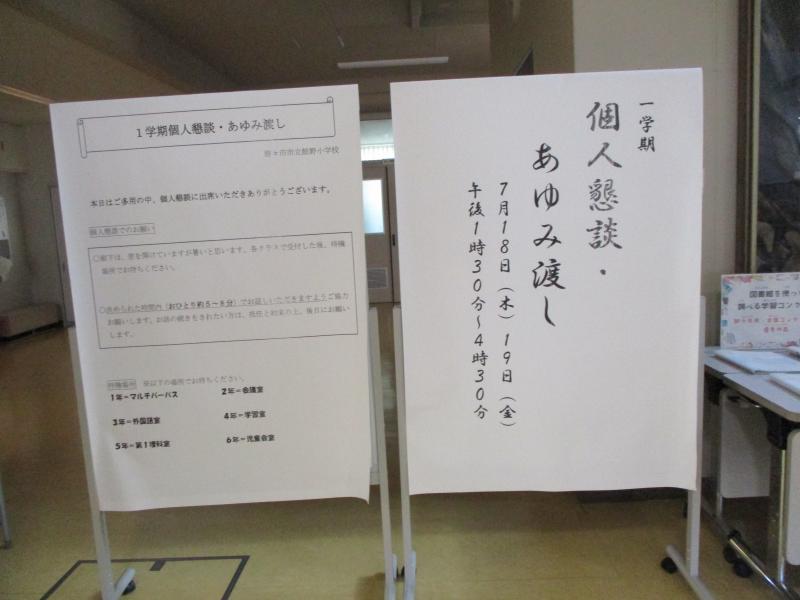 1学期個人懇談・あゆみ渡し
野々市市立館野小学校
本日はご多用の中、個人懇談に出席いただきありがとうございます。
個人懇談でのお願い
○廊下は、窓を開けていますが暑いと思います。各クラスで受付した後、待機
場所でお待ちください。
○決められた時間内（おひとり約5～8分）でお話しいただきますようご協力
お願いします。お話の続きをされたい方は、担任と約束の上、後日にお願い
します。
待機場所 ※以下の場所でお待ちください。
1年＝マルチパーパス 2年＝会議室
3年＝外国語室 4年＝学習室
5年＝第1理科室 6年＝児童会室
一学期
個人懇談・
あゆみ渡し
7月18日（木）19日（金）
午後1時30分～4時30分
図書館を使っ
調べる学習コン